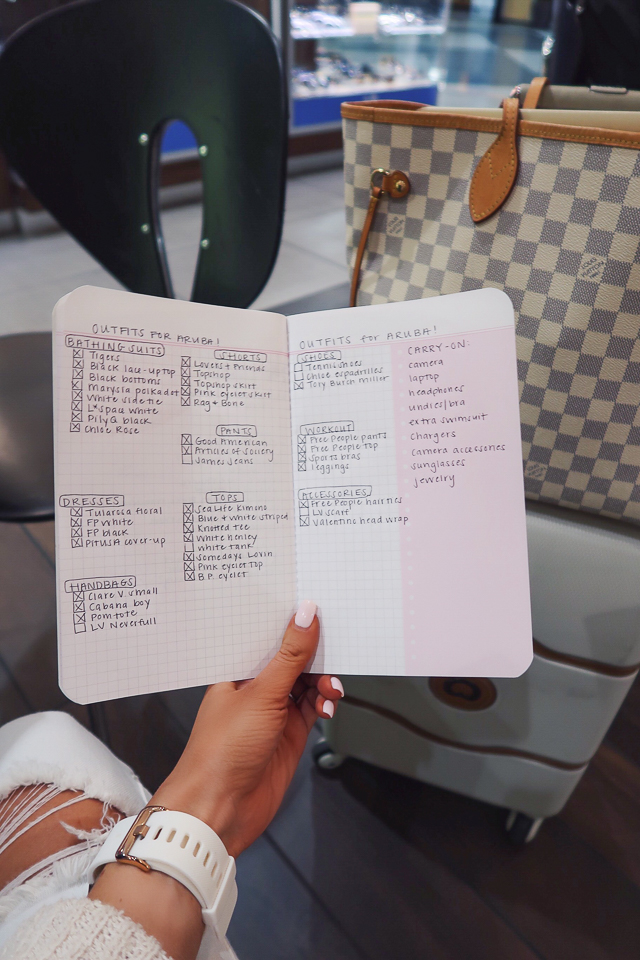 OUTFITS FOR ARUBA!
BATHING SUITS
Tigers
Black lace-up top
Black bottoms
Marysia polkadot
White side tie
L*space white
PilyQ black
Chloe Rose
SHORTS
Lovers + Friends
Topshop
Topshop skirt
Pink eyelet skirt
Rag + Bone
PANTS
Good American
Articles of Society
James Jeans
DRESSES
Tularosa floral
FP White
FP black
Pitusa cover-up
TOPS
Sea Life Kimono
Blue + white striped
Knotted tee
White henley
White tank
Somedays Lovin
Pink eyelet top
B.P. eyelet
HANDBAGS
Clare V. small
Cabana boy
Pom tote
LV Neverfull
OUTFITS for ARUBA!
SHOES
Tennis shoes
Chloe espadrilles
Tory Burch miller
WORKOUT
Free People pants
Free People top
Sports bras
leggings
ACCESSORIES
Free People hair ties
LV scarf
Valentino head wrap
CARRY-ON:
camera
laptop
headphones
undies/bra
extra swimsuit
chargers
camera accessories
sunglasses
jewelry